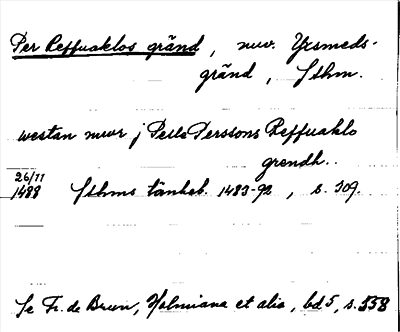 Per Reffuaklos gränd, nuv. Yxsmeds-
gränd, Sthm.
westan mwr j Pelle Perssons Reffuaklo
grendh..
26/11
1488 Sthms tänkeb. 1483-92, s. 309.
Se Fr. de Brun, Holmiana et alia, bd 5, s. 558